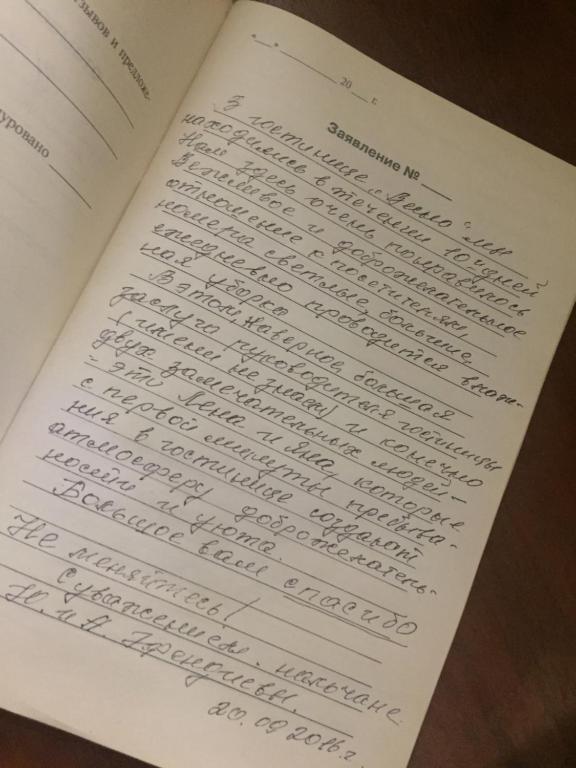 зывов и предложе-
уровано
"__" ________ 20__ г.
Заявление № ____
В гостинице „Вена" мы
находились в течении 10 дней
Нам здесь очень понравилось
Вежливое и доброжелательное
отношение к посетителям,
номера светлые, большие,
ежедневно проводится влаж-
ная уборка
В этом, наверное, большая
заслуга руководителя гостиницы
(имени не знаем) и конечно
двух замечательных людей –
– это Лена и Яна, которые
с первой минуты пребыва-
ния в гостинице создают
атмосферу доброжелатель-
ности и уюта.
Большое вам спасибо
Не меняйтесь!
С уважением. нальчане.
Ю. и А.
20.09 2016 г.